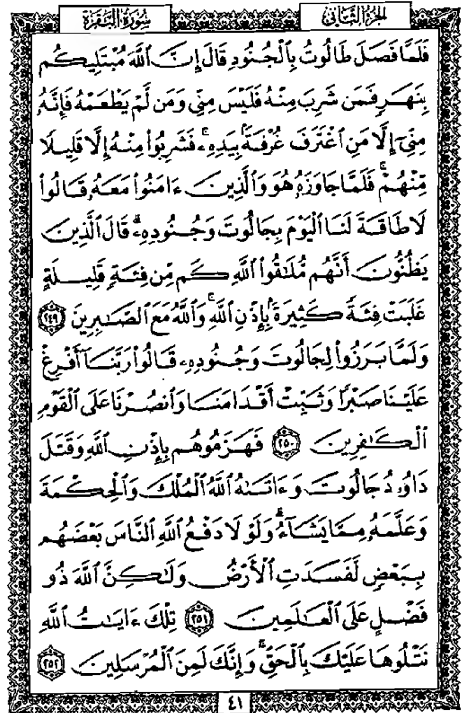 الجزء الثاني
سورة البقرة
فَلَمَّا فَصَلَ طَالُوتُ بِٱلْجُنُودِ قَالَ إِنَّ ٱللَّهَ مُبْتَلِيكُم
بِنَهَرٍ فَمَن شَرِبَ مِنْهُ فَلَيْسَ مِنِّى وَمَن لَّمْ يَطْعَمْهُ فَإِنَّهُۥ
مِنِّىٓ إِلَّا مَنِ ٱغْتَرَفَ غُرْفَةًۢ بِيَدِهِۦ ۚ فَشَرِبُوا۟ مِنْهُ إِلَّا قَلِيلًا
مِّنْهُمْ ۚ فَلَمَّا جَاوَزَهُۥ هُوَ وَٱلَّذِينَ ءَامَنُوا۟ مَعَهُۥ قَالُوا۟
لَا طَاقَةَ لَنَا ٱلْيَوْمَ بِجَالُوتَ وَجُنُودِهِۦ ۚ قَالَ ٱلَّذِينَ
يَظُنُّونَ أَنَّهُم مُّلَـٰقُوا۟ ٱللَّهِ كَم مِّن فِئَةٍ قَلِيلَةٍ
غَلَبَتْ فِئَةً كَثِيرَةًۢ بِإِذْنِ ٱللَّهِ ۗ وَٱللَّهُ مَعَ ٱلصَّـٰبِرِينَ ٢٤٩
وَلَمَّا بَرَزُوا۟ لِجَالُوتَ وَجُنُودِهِۦ قَالُوا۟ رَبَّنَآ أَفْرِغْ
عَلَيْنَا صَبْرًا وَثَبِّتْ أَقْدَامَنَا وَٱنصُرْنَا عَلَى ٱلْقَوْمِ
ٱلْكَـٰفِرِينَ ٢٥٠ فَهَزَمُوهُم بِإِذْنِ ٱللَّهِ وَقَتَلَ
دَاوُۥدُ جَالُوتَ وَءَاتَىٰهُ ٱللَّهُ ٱلْمُلْكَ وَٱلْحِكْمَةَ
وَعَلَّمَهُۥ مِمَّا يَشَآءُ ۗ وَلَوْلَا دَفْعُ ٱللَّهِ ٱلنَّاسَ بَعْضَهُم
بِبَعْضٍ لَّفَسَدَتِ ٱلْأَرْضُ وَلَـٰكِنَّ ٱللَّهَ ذُو
فَضْلٍ عَلَى ٱلْعَـٰلَمِينَ ٢٥١ تِلْكَ ءَايَـٰتُ ٱللَّهِ
نَتْلُوهَا عَلَيْكَ بِٱلْحَقِّ ۚ وَإِنَّكَ لَمِنَ ٱلْمُرْسَلِينَ ٢٥٢
٤١